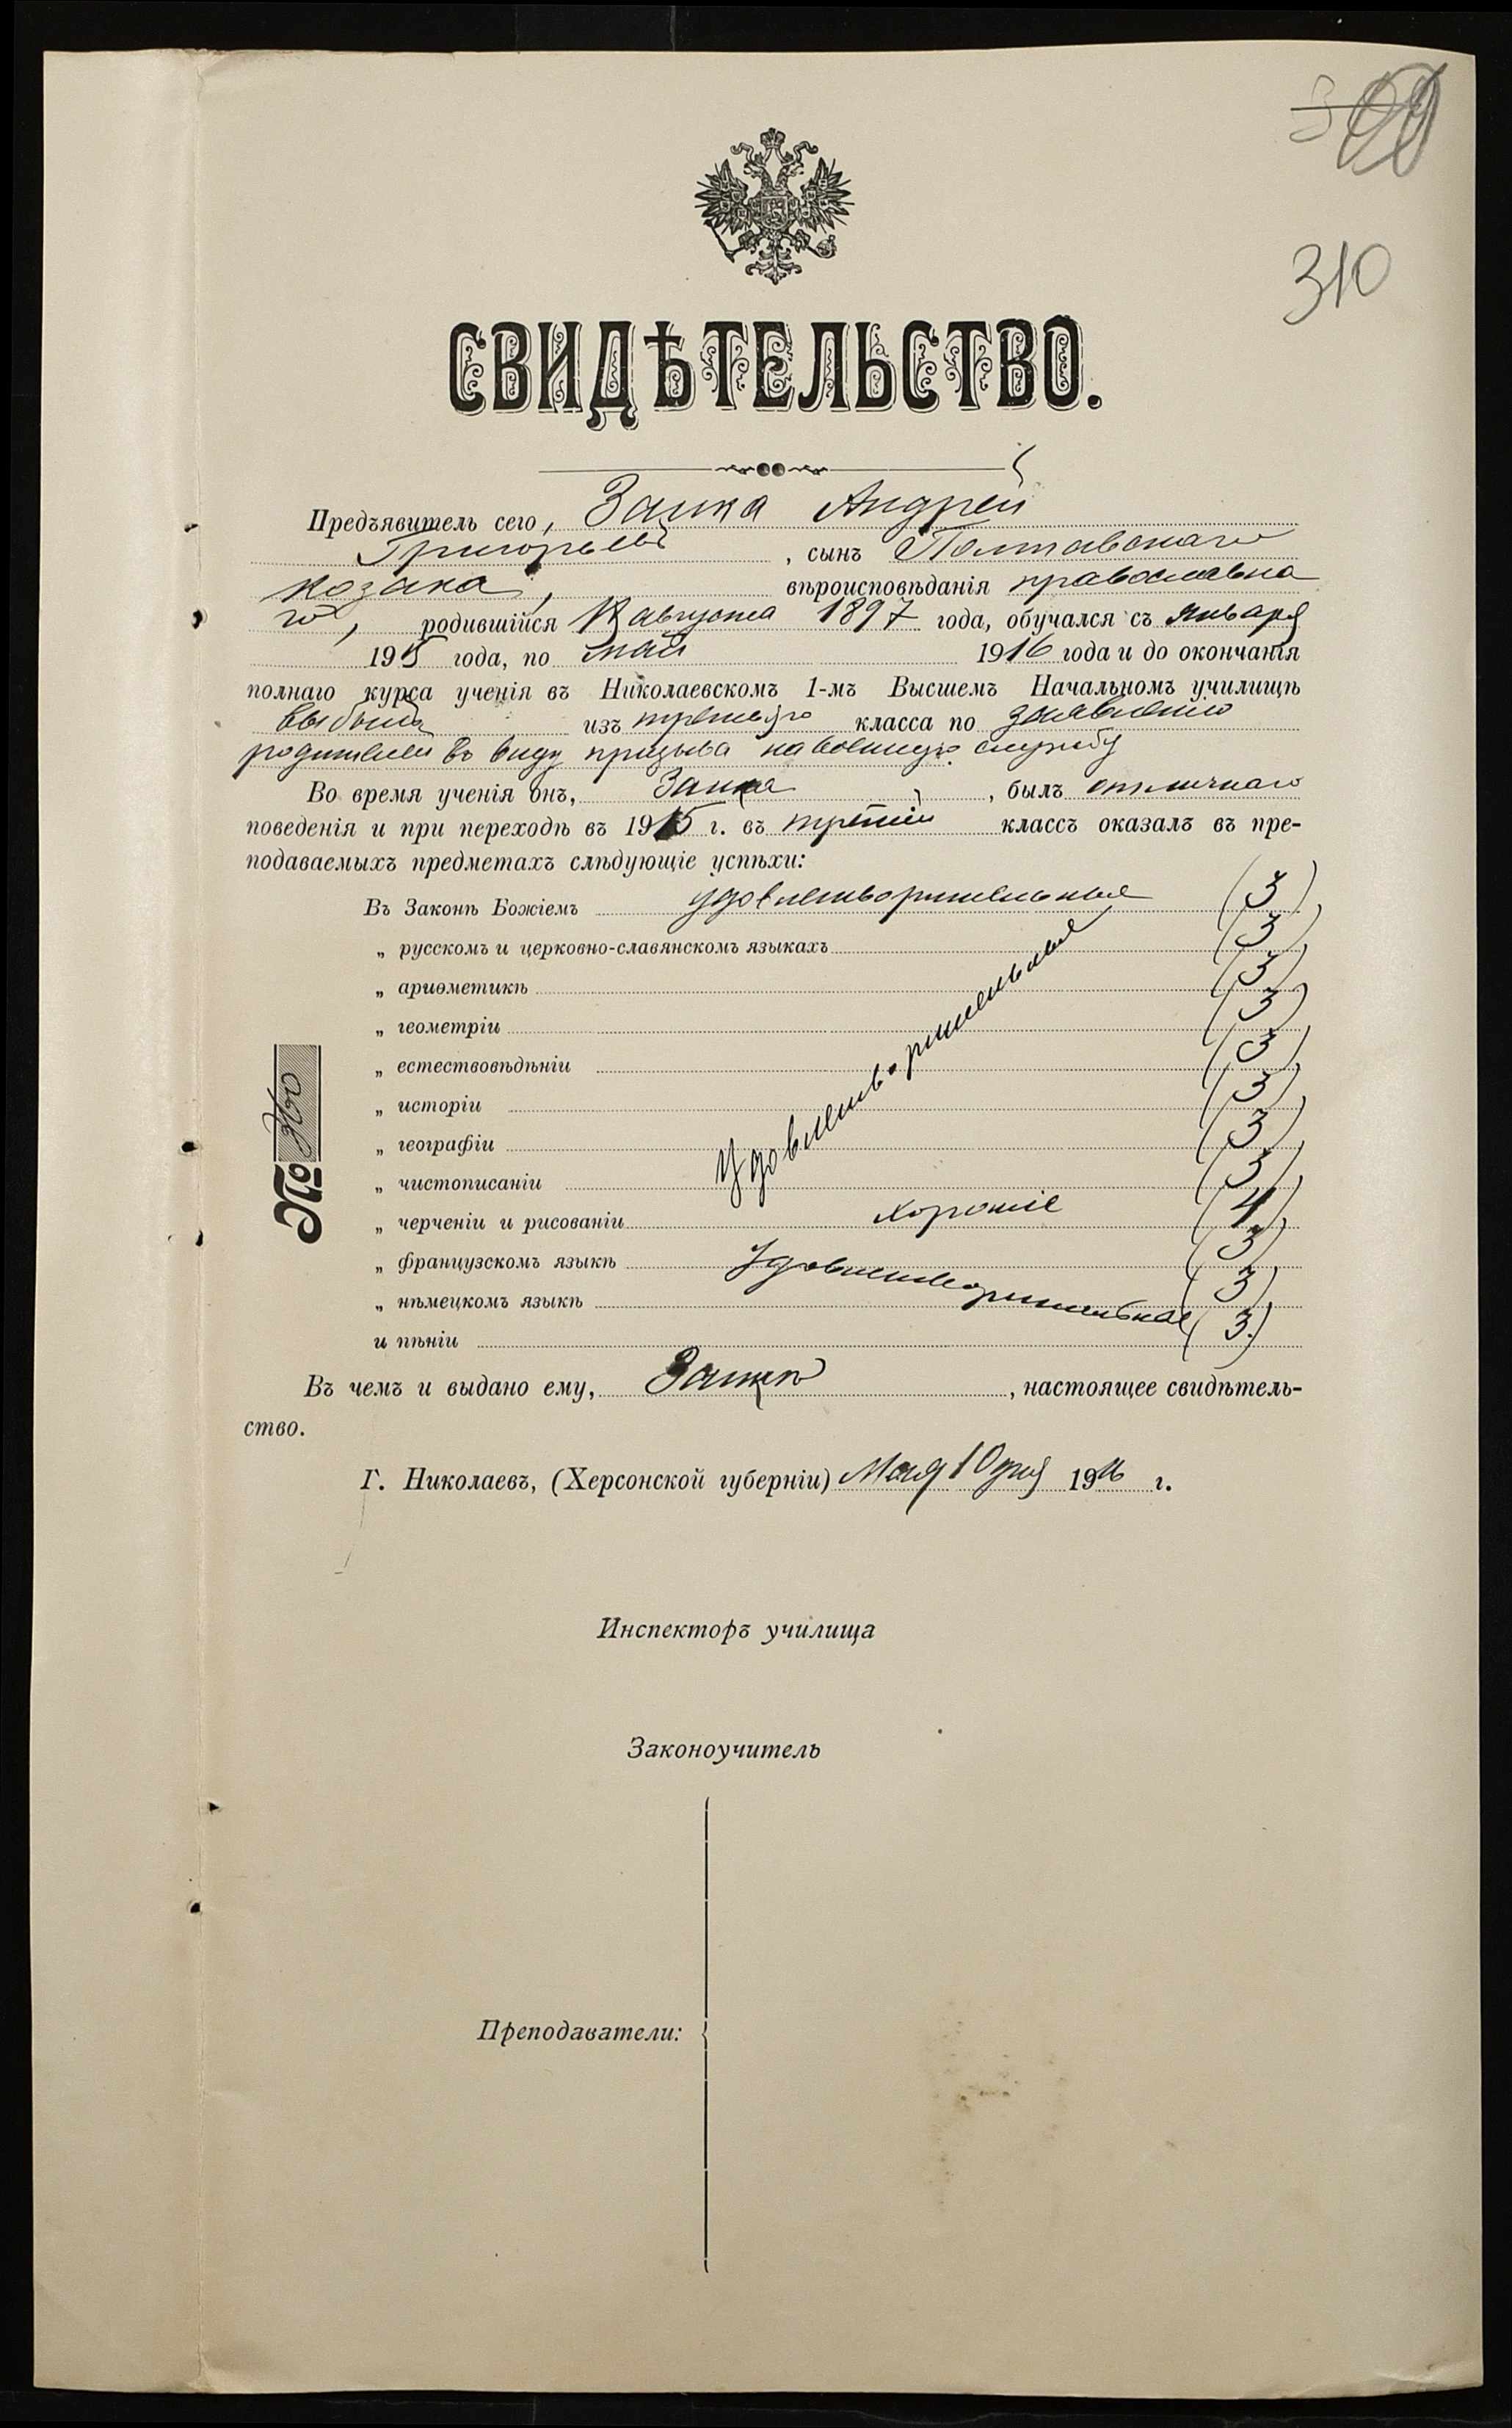 310
СВИДѢТЕЛЬСТВО.
Предъявитель сего, Заика Андрей
Григорьевъ, сынъ Полтавскаго
козака, вѣроисповѣданія православна
го, родившійся августа 1897 года, обучался съ Января
1915 года, по май 1916 года и до окончанія
полнаго курса ученія въ Николаевскомъ 1-мъ Высшемъ Начальномъ училищѣ
выбылъ изъ третьяго класса по заявленію
родителей въ виду призыва на военную службу
Во время ученія онъ, Заика, былъ отличнаго
поведенія и при переходѣ въ 1915 г. въ третій классъ оказалъ въ пре-
подаваемыхъ предметахъ слѣдующіе успѣхи:
Въ Законѣ Божіемъ удовлетворительные (3)
„ русскомъ и церковно-славянскомъ языкахъ (3)
„ ариѳметикѣ (3)
„ геометріи (3)
„ естествовѣдѣніи (3)
„ исторіи удовлетворительные (3)
„ географіи (3)
„ чистописаніи (3)
„ черченіи и рисованіи хорошіе (4)
„ французскомъ языкѣ удовлетворительные (3)
„ нѣмецкомъ языкѣ (3)
и пѣніи (3.)
№
Въ чемъ и выдано ему, Заикѣ, настоящее свидѣтель-
ство.
Г. Николаевъ, (Херсонской губерніи) Мая 10 дня 1916 г.
Инспекторъ училища
Законоучитель
Преподаватели: